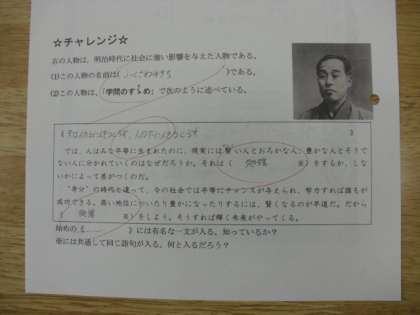 ☆チャレンジ☆
右の人物は、明治時代に社会に強い影響を与えた人物である。
(1)この人物の名前は( ふくざわゆきち )である。
(2)この人物は、「学問のすゝめ」で次のように述べている。
では、人はみな平等に生まれたのに、現実には賢い人とおろかな人、豊かな人とそうで
ない人に分かれていくのはなぜだろうか。それは( 勉強 ※)をするか、しな
いかによって差がつくのだ。
"身分"の時代と違って、今の社会では平等にチャンスが与えられ、努力すれば誰もが
成功できる。高い地位についたり豊かになったりするには、賢くなるのが早道だ。だから
( 勉強 ※)をしよう。そうすれば輝く未来がやってくる。
始めの《 》には有名な一文が入る。知っているか?
※には共通して同じ語句が入る。何と入るだろう?